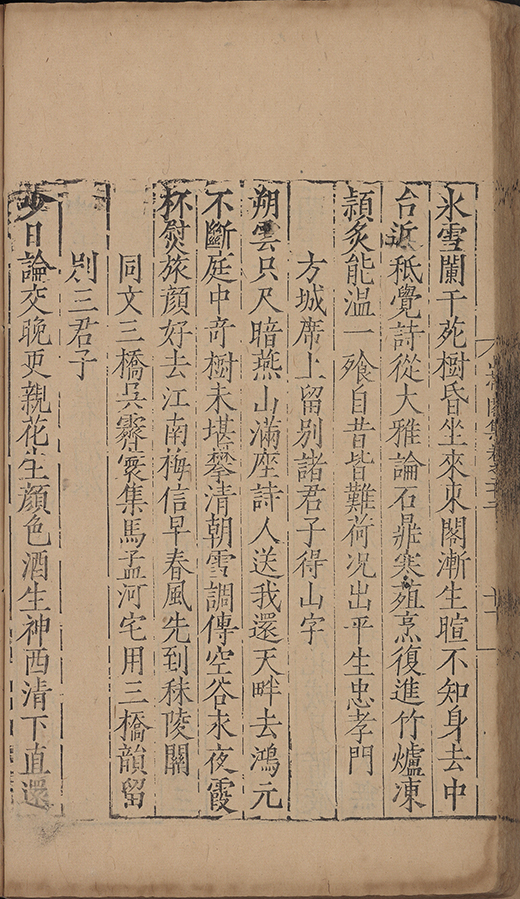 氷雪闌干苑樹昏坐來東閣漸生暄不知身去中
台近秪覺詩從大雅論石鼎寒葅烹復進竹爐凍
頴炙能温一飱自昔皆難荷况出平生忠孝門
方城席上留別諸君子得山字
朔雲只尺暗燕山滿座詩人送我還天畔去鴻元
不斷庭中竒樹未堪攀清朝雪調傳空谷永夜霞
杯熨旅顔好去江南梅信早春風先到秣陵關
同文三橋吳霽寰集馬孟河宅用三橋韻留
別三君子
少日論交晚更親花生顔色酒生神西清下直還